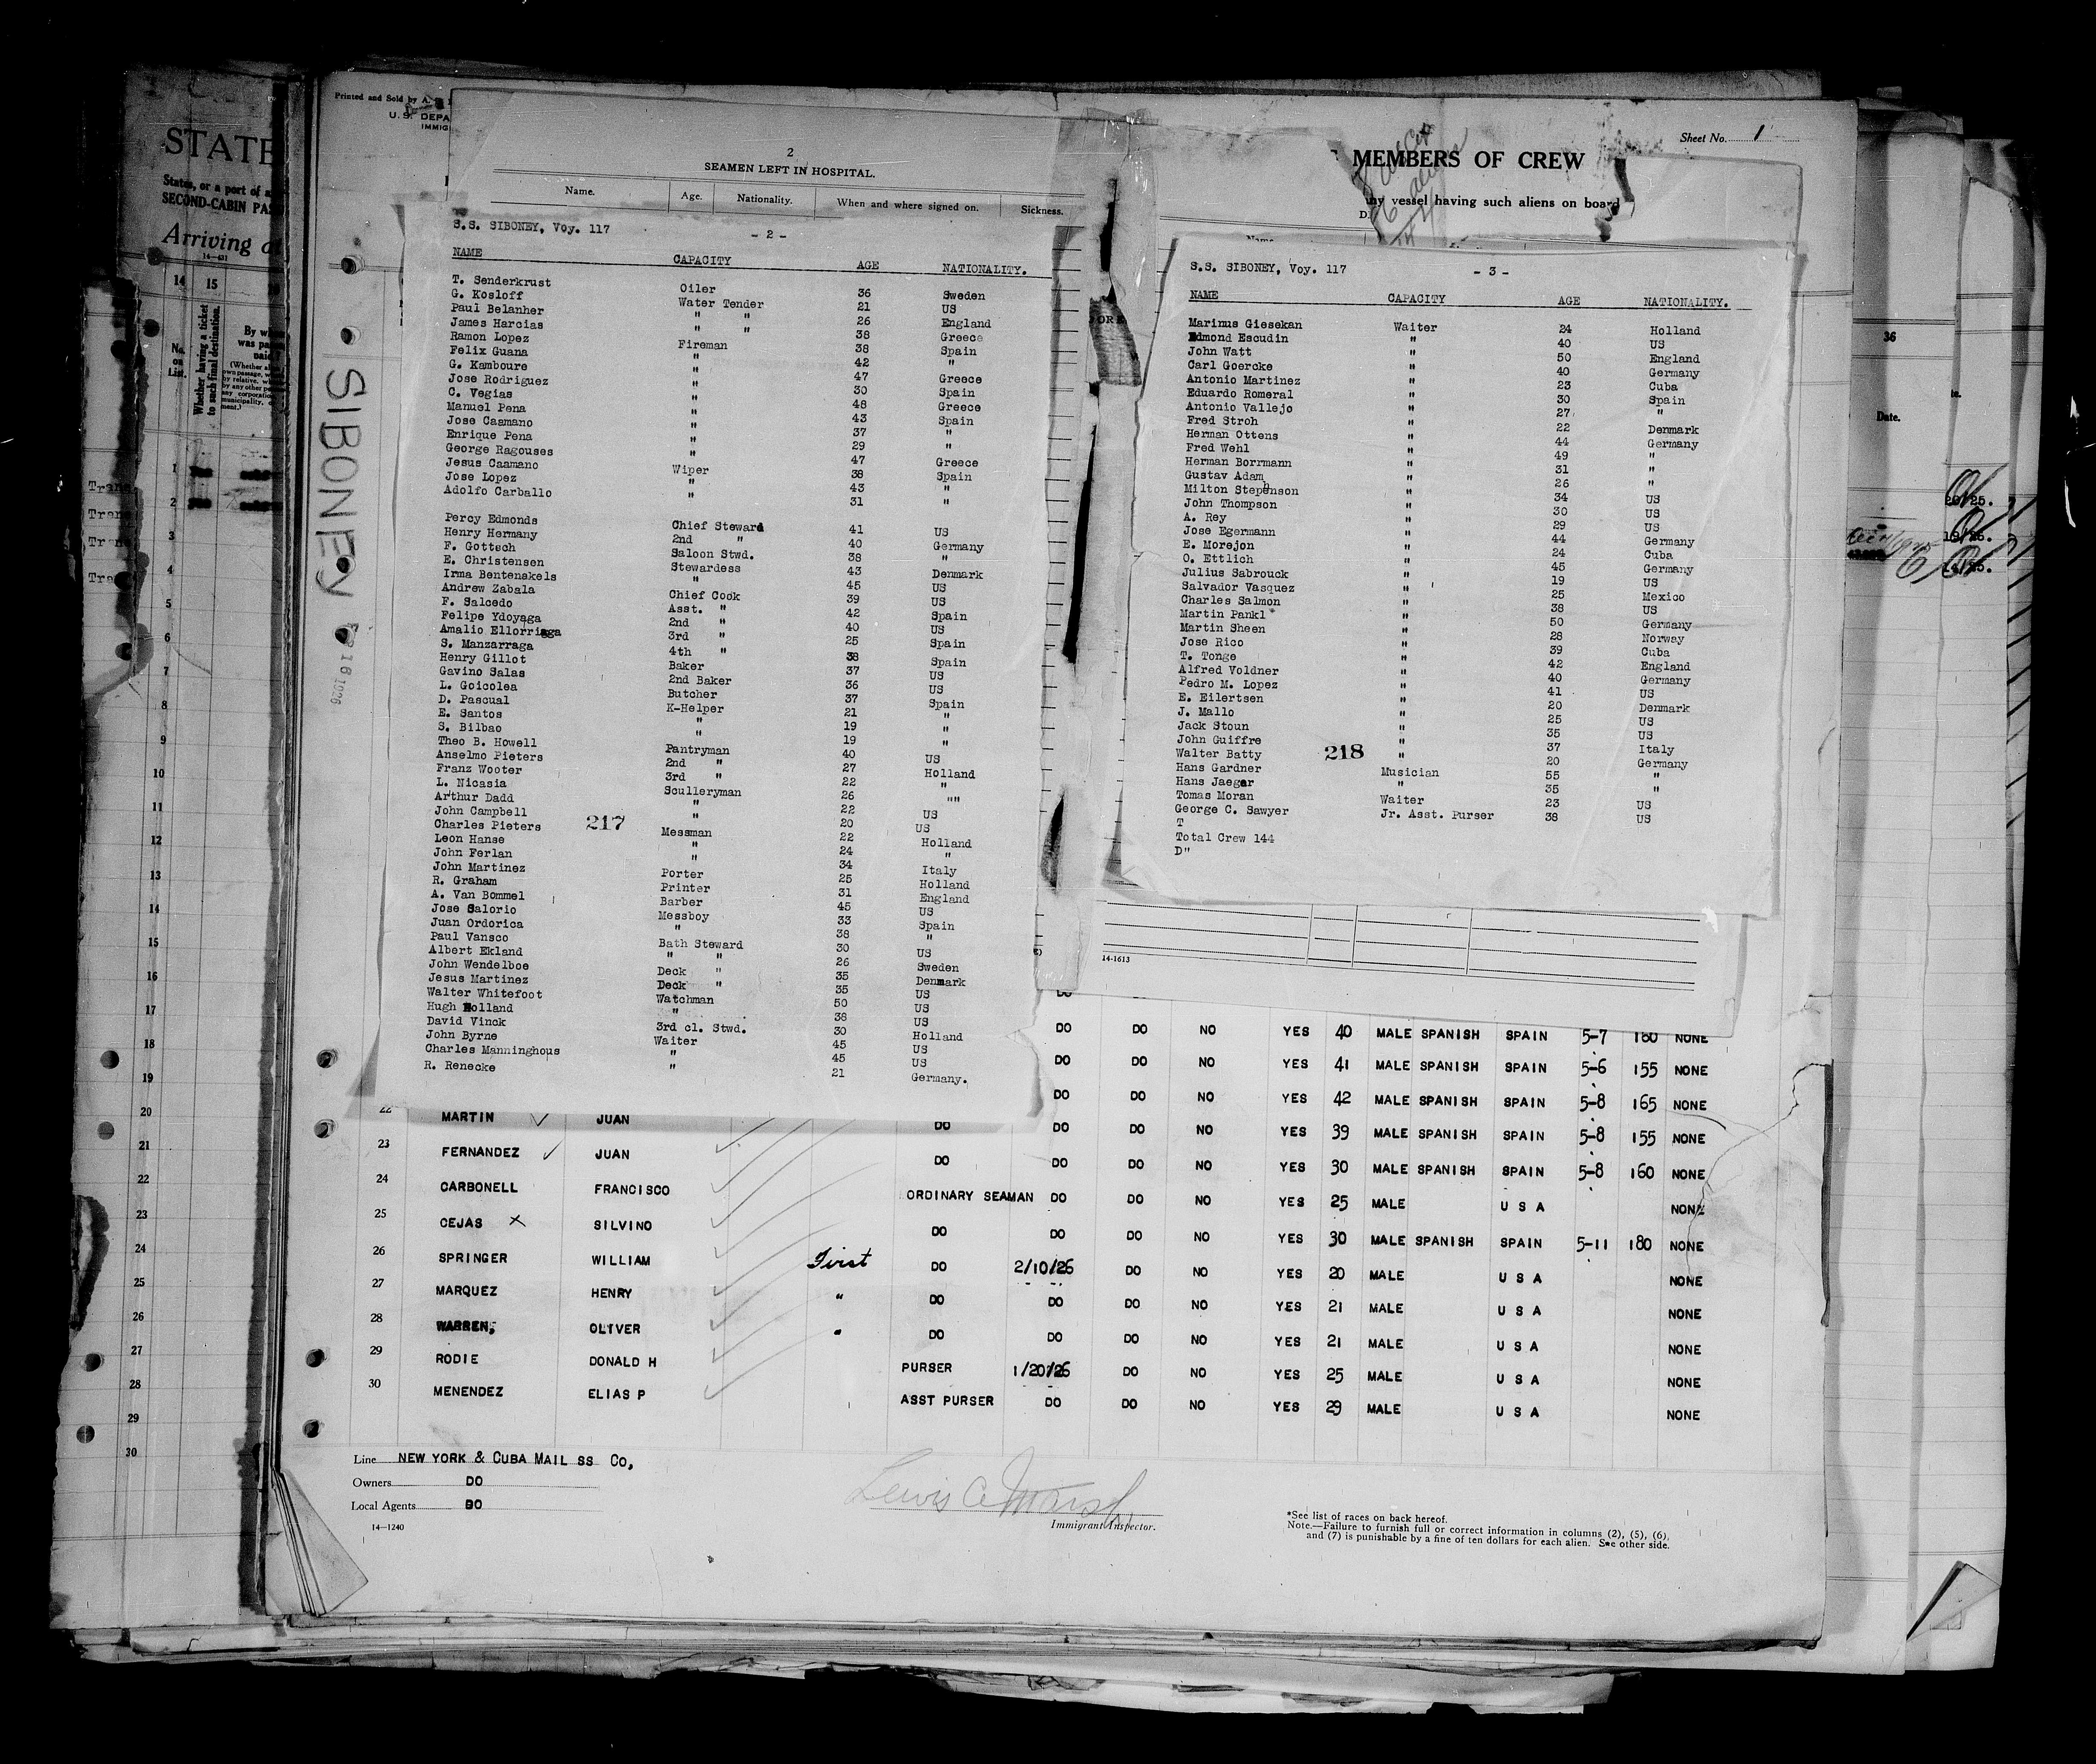 STATE
States, or a port of a
SECOND-CABIN PAS
Arriving a
14-431
14 15
No. on List.
Whether having a ticket to such final destination.
1
2
3
4
5
6
7
8
9
10
11
12
13
14
15
16
17
18
19
20
21
22
23
24
25
26
27
28
29
30
SIBONEY
Printed and Sold by A.
U.S. DEPA
IMMIG
2
SEAMEN LEFT IN HOSPITAL.
Name. Age. Nationality. When and where signed on. Sickness.
S.S. SIBONEY, Voy. 117 - 2 -
NAME CAPACITY AGE NATIONALITY.
T. Senderkrust Oiler 36 Sweden
G. Kosloff Water Tender 21 US
Paul Belanher " " 26 England
James Harcias " " 38 Greece
Ramon Lopez Fireman 38 Spain
Felix Guana " 42 "
G. Kamboure " 47 Greece
Jose Rodriguez " 30 Spain
C. Vegias " 48 Greece
Manuel Pena " 43 Spain
Jose Caamano " 37 "
Enrique Pena " 29 "
George Ragouses " 47 Greece
Jesus Caamano Wiper 38 Spain
Jose Lopez " 43 "
Adolfo Carballo " 31 "
Percy Edmonds Chief Steward 41 US
Henry Hermany 2nd " 40 Germany
F. Gottsch Saloon Stwd. 38 "
E. Christensen Stewardess 43 Denmark
Irma Bentenakels " 45 US
Andrew Zabala Chief Cook 39 US
F. Salcedo Asst. " 42 Spain
Felipe Ydoyaga 2nd " 40 US
Amalio Ellorriaga 3rd " 25 Spain
S. Manzarraga 4th " 38 Spain
Henry Gillot Baker 37 US
Gavino Salas 2nd Baker 36 US
L. Goicolea Butcher 37 Spain
D. Pascual K-Helper 21 "
E. Santos " 19 "
S. Bilbao " 19 "
Theo B. Howell Pantryman 40 US
Anselmo Pieters 2nd " 27 Holland
Franz Wooter 3rd " 22 "
L. Nicasia Sculleryman 26 ""
Arthur Dadd " 22 US
John Campbell " 20 US
Charles Pieters 217 Messman 22 Holland
Leon Hanse " 24 "
John Ferlan " 34 Italy
John Martinez Porter 25 Holland
R. Graham Printer 31 England
A. Van Bommel Barber 45 US
Jose Salorio Messboy 33 Spain
Juan Ordorica " 38 "
Paul Vansco Bath Steward 30 US
Albert Ekland " " 26 Sweden
John Wendelboe Deck " 35 Denmark
Jesus Martinez Deck " 35 US
Walter Whitefoot Watchman 50 US
Hugh Holland " 38 US
David Vinck 3rd cl. Stwd. 30 Holland
John Byrne Waiter 45 US
Charles Manninghous " 45 US
R. Renecke " 21 Germany.
Sheet No. 1
MEMBERS OF CREW
ny vessel having such aliens on board
S.S. SIBONEY, Voy. 117 - 3 -
NAME CAPACITY AGE NATIONALITY.
Marinus Giesekan Waiter 24 Holland
Edmond Escudin " 40 US
John Watt " 50 England
Carl Goercke " 40 Germany
Antonio Martinez " 23 Cuba
Eduardo Romeral " 30 Spain
Antonio Vallejo " 27 "
Fred Stroh " 22 Denmark
Herman Ottens " 44 Germany
Fred Wehl " 49 "
Herman Borrmann " 31 "
Gustav Adam " 26 "
Milton Stephenson " 34 US
John Thompson " 30 US
A. Rey " 29 US
Jose Egermann " 44 Germany
E. Morejon " 24 Cuba
O. Ettlich " 45 Germany
Julius Sabrouck " 19 US
Salvador Vasquez " 25 Mexico
Charles Salmon " 38 US
Martin Pankl " 50 Germany
Martin Sheen " 28 Norway
Jose Rico " 39 Cuba
T. Tonge " 42 England
Alfred Voldner " 40 Germany
Pedro M. Lopez " 41 US
E. Eilertsen " 20 Denmark
J. Mallo " 25 US
Jack Stoun " 35 US
John Guiffre " 37 Italy
Walter Batty 218 " 20 Germany
Hans Gardner Musician 55 "
Hans Jaeger " 35 "
Tomas Moran Waiter 23 US
George C. Sawyer Jr. Asst. Purser 38 US
T
Total Crew 144
D"
14-1613
36
Date.
DO DO NO YES 40 MALE SPANISH SPAIN 5-7 160 NONE
DO DO NO YES 41 MALE SPANISH SPAIN 5-6 155 NONE
DO DO NO YES 42 MALE SPANISH SPAIN 5-8 165 NONE
22 MARTIN JUAN DO DO DO NO YES 39 MALE SPANISH SPAIN 5-8 155 NONE
23 FERNANDEZ JUAN DO DO DO NO YES 30 MALE SPANISH SPAIN 5-8 160 NONE
24 CARBONELL FRANCISCO ORDINARY SEAMAN DO DO NO YES 25 MALE U S A NONE
25 CEJAS X SILVINO DO DO DO NO YES 30 MALE SPANISH SPAIN 5-11 180 NONE
26 SPRINGER WILLIAM First DO 2/10/26 DO NO YES 20 MALE U S A NONE
27 MARQUEZ HENRY " DO DO DO NO YES 21 MALE U S A NONE
28 WARREN, OLIVER " DO DO DO NO YES 21 MALE U S A NONE
29 RODIE DONALD H PURSER 1/20/26 DO NO YES 25 MALE U S A NONE
30 MENENDEZ ELIAS P ASST PURSER DO DO NO YES 29 MALE U S A NONE
Line NEW YORK & CUBA MAIL SS CO,
Owners DO
Local Agents DO
14-1240
Lewis A Marsh
Immigrant Inspector.
*See list of races on back hereof.
Note.—Failure to furnish full or correct information in columns (2), (5), (6),
and (7) is punishable by a fine of ten dollars for each alien. See other side.